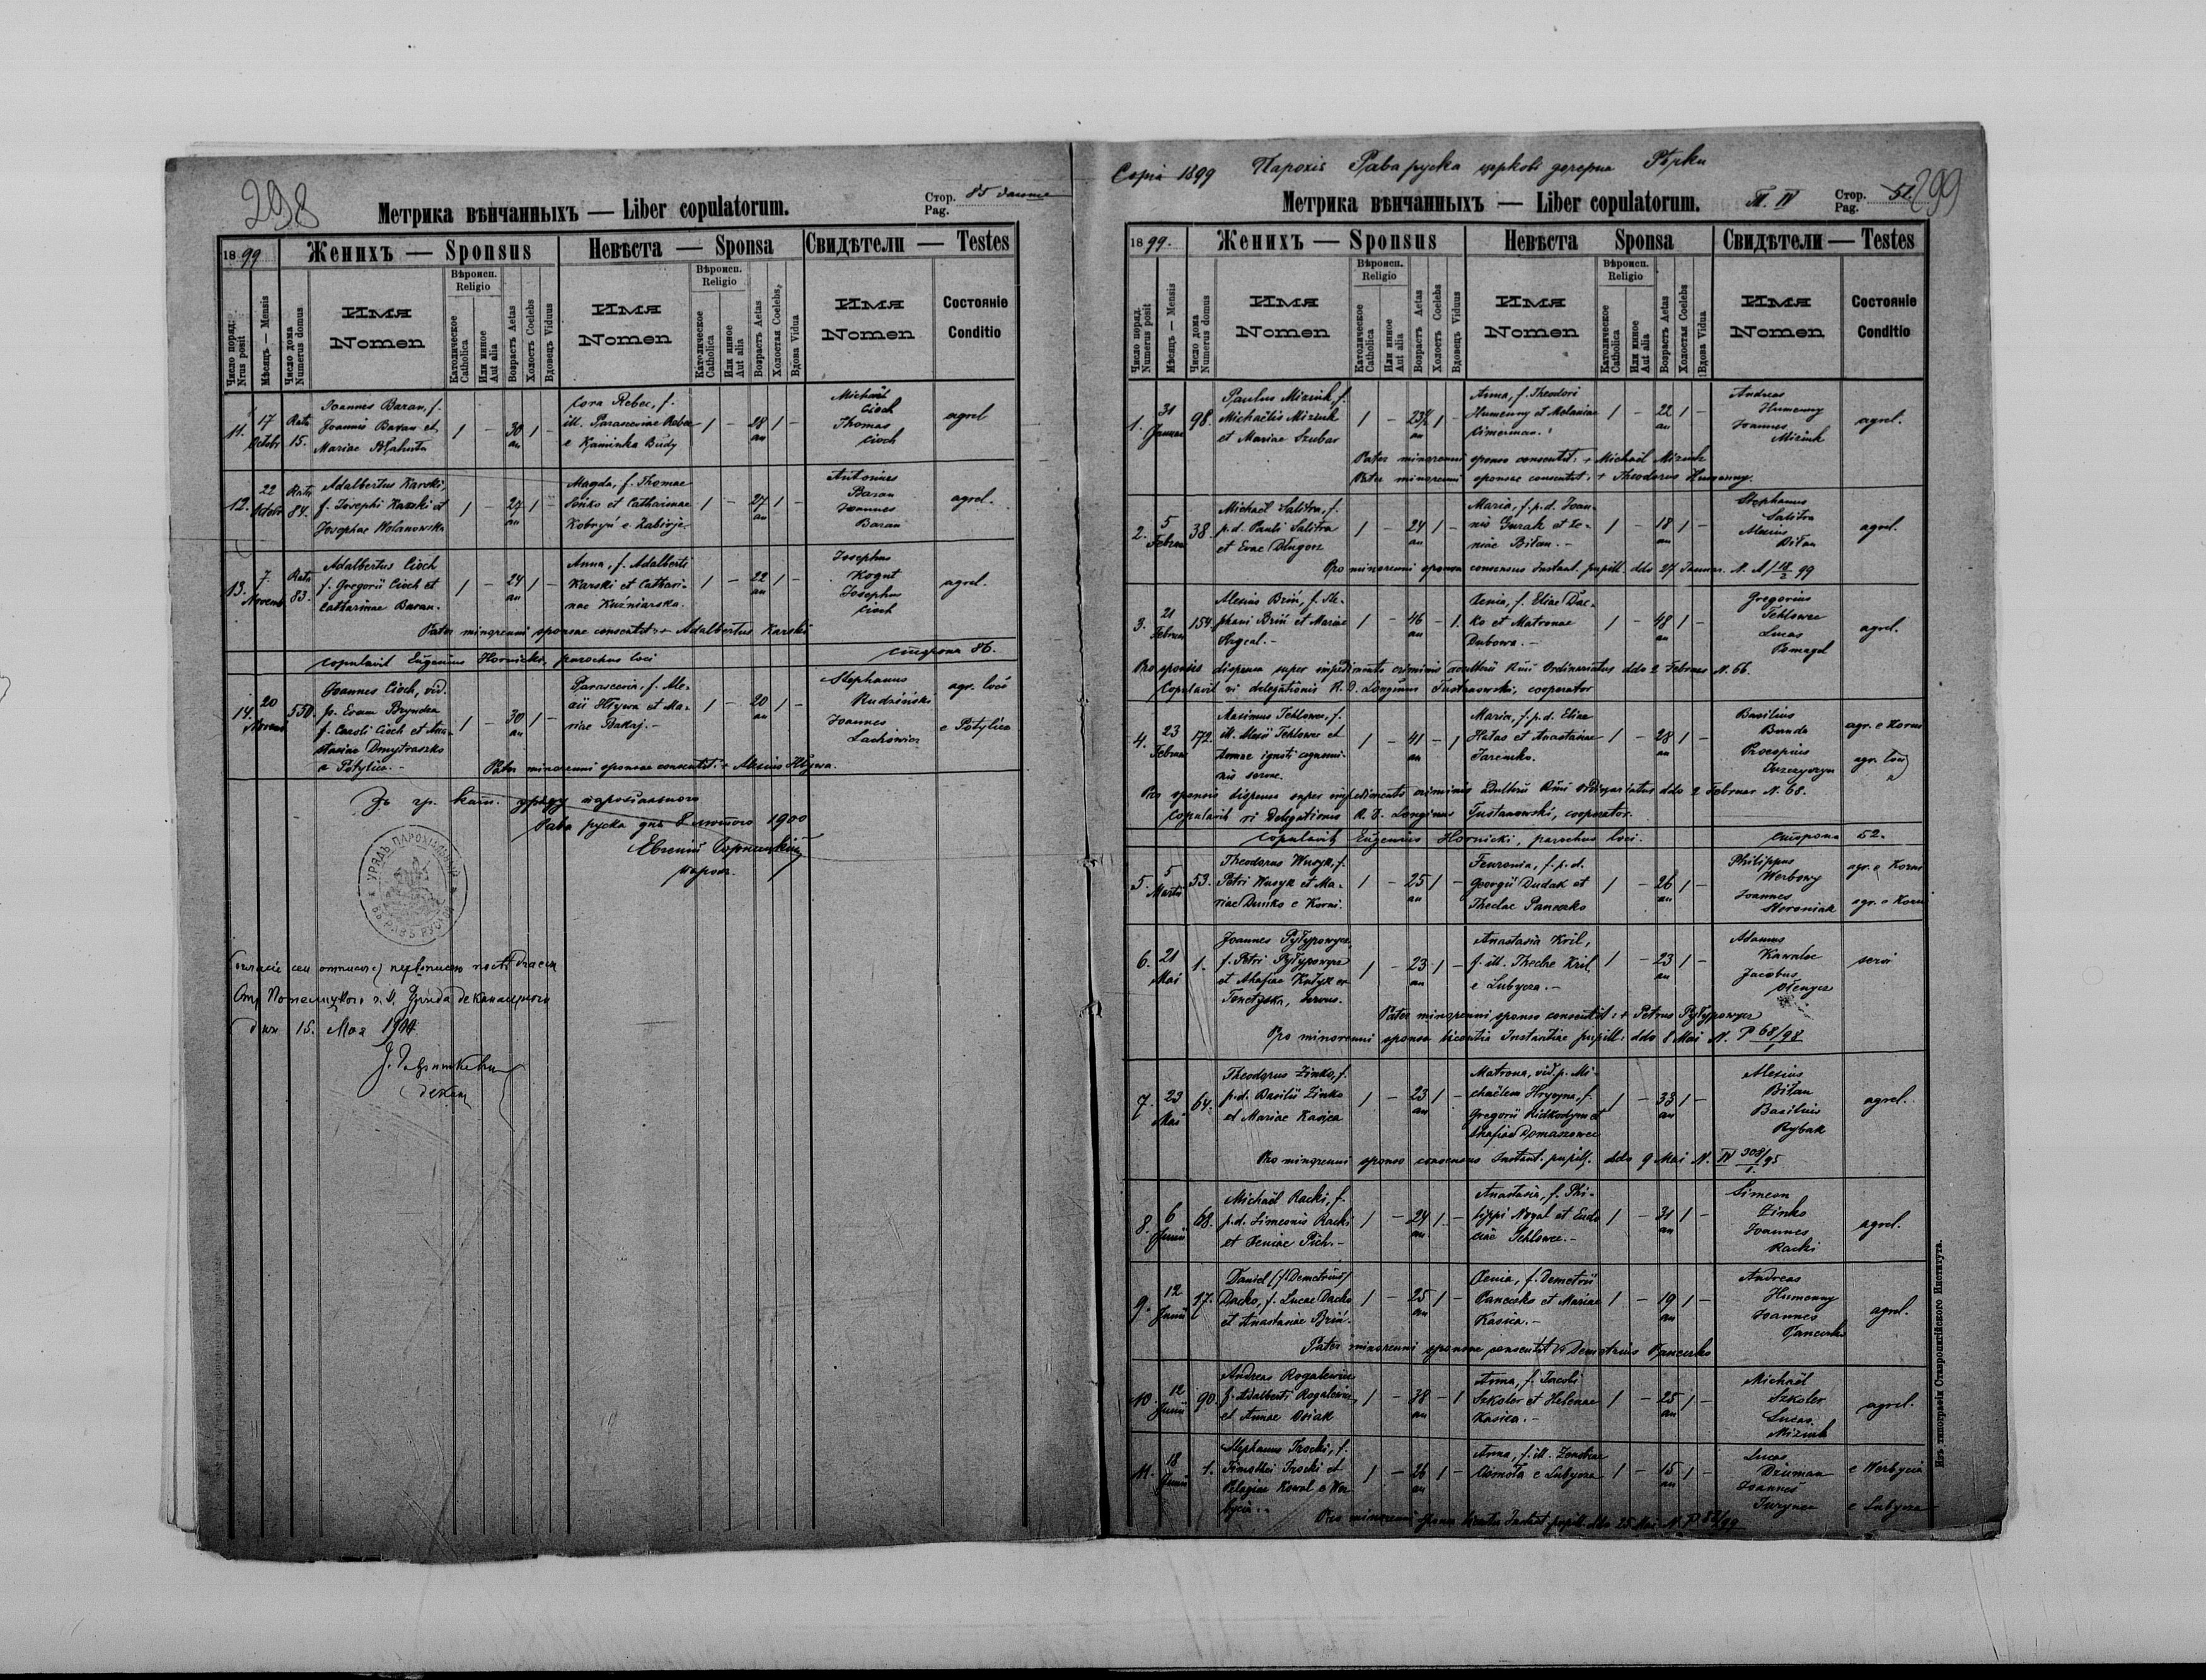 298
Метрика вѣнчанныхъ — Liber copulatorum.
Стор. Pag. 85
1899
Женихъ — Sponsus
Невѣста — Sponsa
Свидѣтели — Testes
Число поряд. Nrus posit
Мѣсяцъ — Mensis
Число дома Numerus domus
Имя Nomen
Вѣроисп. Religio
Католическое Catholica
Или инное Aut alia
Возрастъ Aetas
Холостъ Coelebs
Вдовецъ Viduus
Имя Nomen
Вѣроисп. Religio
Католическое Catholica
Или инное Aut alia
Возрастъ Aetas
Холостая Coelebs
Вдова Vidua
Имя Nomen
Состояніе Conditio
11. 17 Octobr Rata 15.
Joannes Baran, f.
Joannis Baran et
Mariae
1 – 30 an 1 –
Rebec, f.
ill. Parasceviae Rebec
e Kaminka Budy
1 – 28 an 1 –
Michaël
Cioch
Thomas
Cioch
agrol.
12. 22 Octobr Rata 84.
Adalbertus Karski,
f. Josephi Karski et
Josephae Wolanowska
1 – 27 an 1 –
Magda, f. Thomae
Senko et Catharinae
Kobryn e Zabirje
1 – 27 an 1 –
Antonius
Baran
Joannes
Baran
agrol.
13. 7 Novemb Rata 83.
Adalbertus Cioch
f. Gregorii Cioch et
Catharinae Baran.
1 – 24 an 1 –
Anna, f. Adalberti
Karski et Cathari-
nae Kuzniarska.
1 – 22 an 1 –
Josephus
Kogut
Josephus
Cioch
agrol.
Pater minorenni sponsae consentit: + Adalbertus Karski
Copulavit Eugenius Hornicki, parochus loci
сторона 86.
14. 20 Novemb 550
Joannes Cioch, vid.
p. Evam Bryndza
f. Caroli Cioch et Ana-
stasiae Dmytraszko
e Potylicz. –
1 – 30 an 1 –
Parascevia, f. Ale-
xii Hływa et Ma-
riae Bakaj. –
1 – 20 an 1 –
Stephanus
Rudziński
Joannes
Lachowicz
agr. loci
e Potylicz
Pater minorenni sponsae consentit: + Alexius Hływa.
Рава руска дня 8 лютого 1900
Евгеній Горницкій
парох.
УРЯДЪ ПАРОХІАЛЬНЫЙ
дня 15. Мая 1900
декан
Копія 1899 Парохія Рава руска церковь дочерна Рѣчки
Метрика вѣнчанныхъ — Liber copulatorum.
T. IV
Стор. Pag. 51.
299
1899.
Женихъ — Sponsus
Невѣста Sponsa
Свидѣтели — Testes
Число поряд. Numerus posit
Мѣсяцъ — Mensis
Число дома Numerus domus
Имя Nomen
Вѣроисп. Religio
Католическое Catholica
Или инное Aut alia
Возрастъ Aetas
Холостъ Coelebs
Вдовецъ Viduus
Имя Nomen
Вѣроисп. Religio
Католическое Catholica
Или инное Aut alia
Возрастъ Aetas
Холостая Coelebs
Вдова Vidua
Имя Nomen
Состояніе Conditio
1. 31 Januar 98.
Paulus Miziuk, f.
Michaëlis Miziuk
et Mariae Szubar
1 – 23½ an 1 –
Anna, f. Theodori
Humenny et Melaniae
Cimerman.
1 – 22 an 1 –
Andreas
Humenny
Joannes
Miziuk
agrol.
Pater minorenni sponso consentit: + Michaël Miziuk
Pater minorenni sponsae consentit: + Theodorus Humenny.
2. 5 Februar 38.
Michaël Salitra, f.
p.d. Pauli Salitra
et Evae Długosz
1 – 24 an 1 –
Maria, f. p.d. Joan-
nis Gurak et Xe-
niae Biłan. –
1 – 18 an 1 –
Stephanus
Salitra
Alexius
Biłan
agrol.
Pro minorenni sponsa consensus Instant. pupill. ddo 27 Januar. N. A/ 18/2 99
3. 21 Februar 154.
Alexius Briń, f. Ste-
phani Briń et Mariae
1 – 46 an – 1.
Xenia, f. Eliae Dac-
ko et Matronae
Dubowa. –
1 – 48 an 1 –
Gregorius
Tehlowec
Lucas
Romagal
agrol.
Pro sponsis dispensa super impedimento criminis adulterii Rmi Ordinariatus ddo 2 Februar N. 66.
Copulavit vi delegationis R. D. Longinus Tustanowski, cooperator
4. 23 Februar 172.
Maximus Tehlowec, f.
ill. Alexii Tehlowec et
Annae ignoti cognomi-
nis
1 – 41 an – 1
Maria, f. p.d. Eliae
Hałas et Anastasiae
Jaremko.
1 – 28 an 1 –
Basilius
Banda
Procopius
agr. e Korni
agr. loci
Pro sponsis dispensa super impedimento criminis adulterii Rmi Ordinariatus ddo 2 Februar N. 68.
Copulavit vi delegationis R. D. Longinus Tustanowski, cooperator.
Copulavit Eugenius Hornicki, parochus loci.
сторона 52.
5. 5 Martii 53.
Theodorus Wusyk, f.
Petri Wusyk et Ma-
riae Dunko e Korni.
1 – 25 an 1 –
Feuronia, f. p.d.
Georgii Dudak et
Theclae Paneczko
1 – 26 an 1 –
Philippus
Werbowy
Joannes
Woroniak
agr. e Korni
agr. e Korni
6. 21 Mai 1.
Joannes Pyłypowycz,
f. Petri Pyłypowycz
et Ahafiae
servus.
1 – 23 an 1 –
Anastasia Kril,
f. ill. Theclae Kril
e Lubycza. –
1 – 23 an 1 –
Adamus
Jacobus
servi
Pater minorenni sponso consentit: + Petrus Pyłypowycz
Pro minorenni sponsa licentia Instantiae pupill: ddo 8 Mai N. P 68/98
7. 23 Mai 64.
Theodorus Zinko, f.
p.d. Basilii Zinko
et Mariae Kasica
1 – 23 an 1 –
Matrona, vid. p. Mi-
chaëlem Hrycyna, f.
Gregorii Ridkodym et
Ahafiae Domaszowec
1 – 33 an 1 –
Alexius
Biłan
Basilius
Rybak
agrol.
Pro minorenni sponso consensus Instant. pupill. ddo 9 Mai N. IV 303/95
8. 6 Junii 68.
Michaël Racki, f.
p.d. Simeonis Racki
et Xeniae Pich. –
1 – 24 an 1 –
Anastasia, f. Phi-
lippi Nogal et Eudo-
ciae Tehlowec. –
1 – 31 an 1 –
Simeon
Zinko
Joannes
Racki
agrol.
9. 12 Junii 17.
Daniel (f. Demetrius)
Dacko, f. Lucae Dacko
et Anastasiae Briń.
1 – 25 an 1 –
Xenia, f. Demetrii
Paneczko et Mariae
Kasica. –
1 – 19 an 1 –
Andreas
Humenny
Joannes
Paneczko
agrol.
Pater minorenni sponsae consentit: + Demetrius Paneczko
10. 12 Junii 90.
Andreas Rogalewicz
f. Adalberti Rogalewicz
et Annae Osiak
1 – 38 an – 1
Anna, f. Jacobi
Szkoler et Helenae
Kasica. –
1 – 25 an 1 –
Michaël
Szkoler
Lucas
Miziuk
agrol.
11. 18 Junii 1.
Stephanus Trocki, f.
Timothei Trocki et
Pelagiae Kowal e Wer-
bycia. –
1 – 26 an 1 –
Anna, f. ill.
e Lubycza
1 – 15 an 1 –
Lucas
Dziuman
Joannes
e Werbycia
e Lubycza
Pro minorenni sponsa licentia Instant. pupill. ddo 25 Mai N. P 82/99
Изъ типографіи Ставропигійского Института.